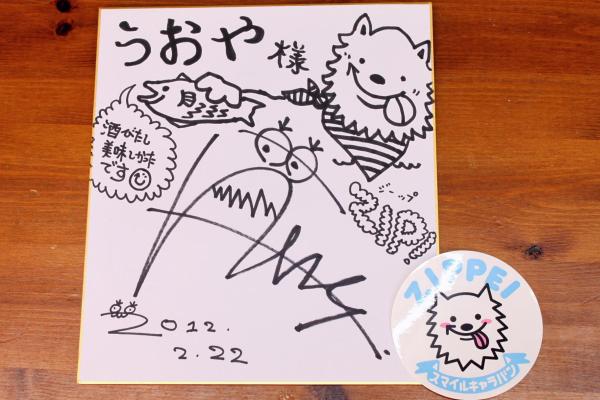 うおや様
酒がたし
美味しかた
です
ジーップ
ZIP!
2012.
2.22
ZIPPEI
スマイルキャラバン